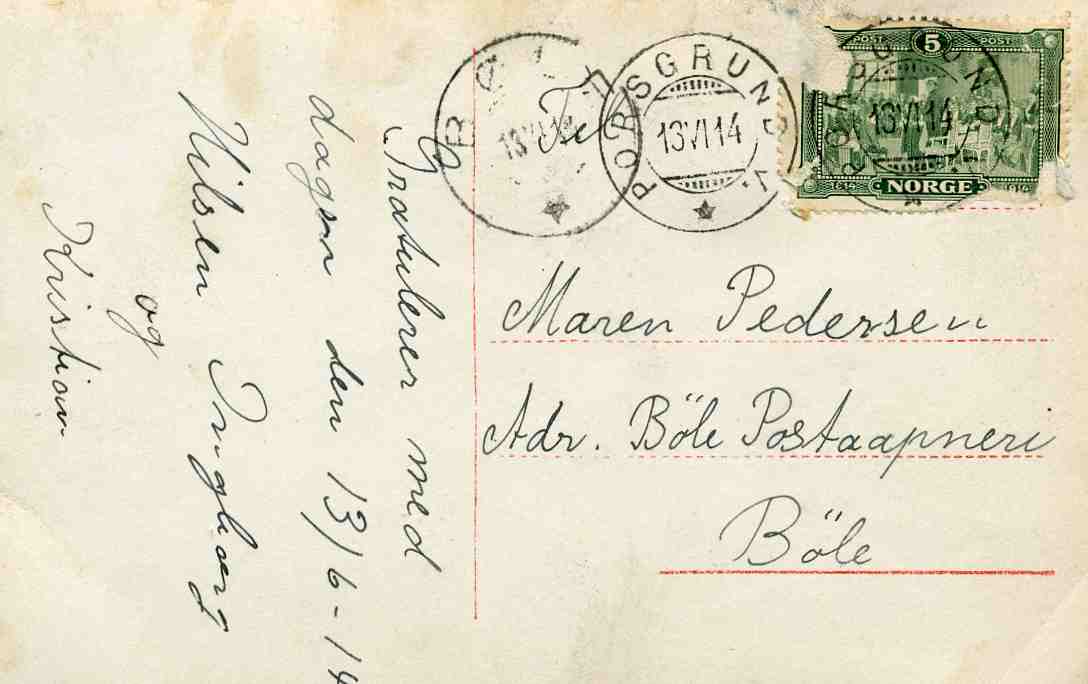 Gratulerer med
dagen den 13/6-14
Hilsen Ingborg
og
Kristian
BØLE
13 VI 14
PORSGRUND
13 VI 14
PORSGRUND
13 VI 14
POST 5 POST
1814 NORGE 1914
Til
Maren Pedersen
Adr. Böle Postaapneri
Böle